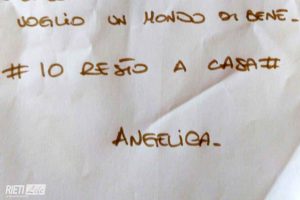 VOGLIO UN MONDO DI BENE.
# IO RESTO A CASA #
ANGELICA.
RIETI